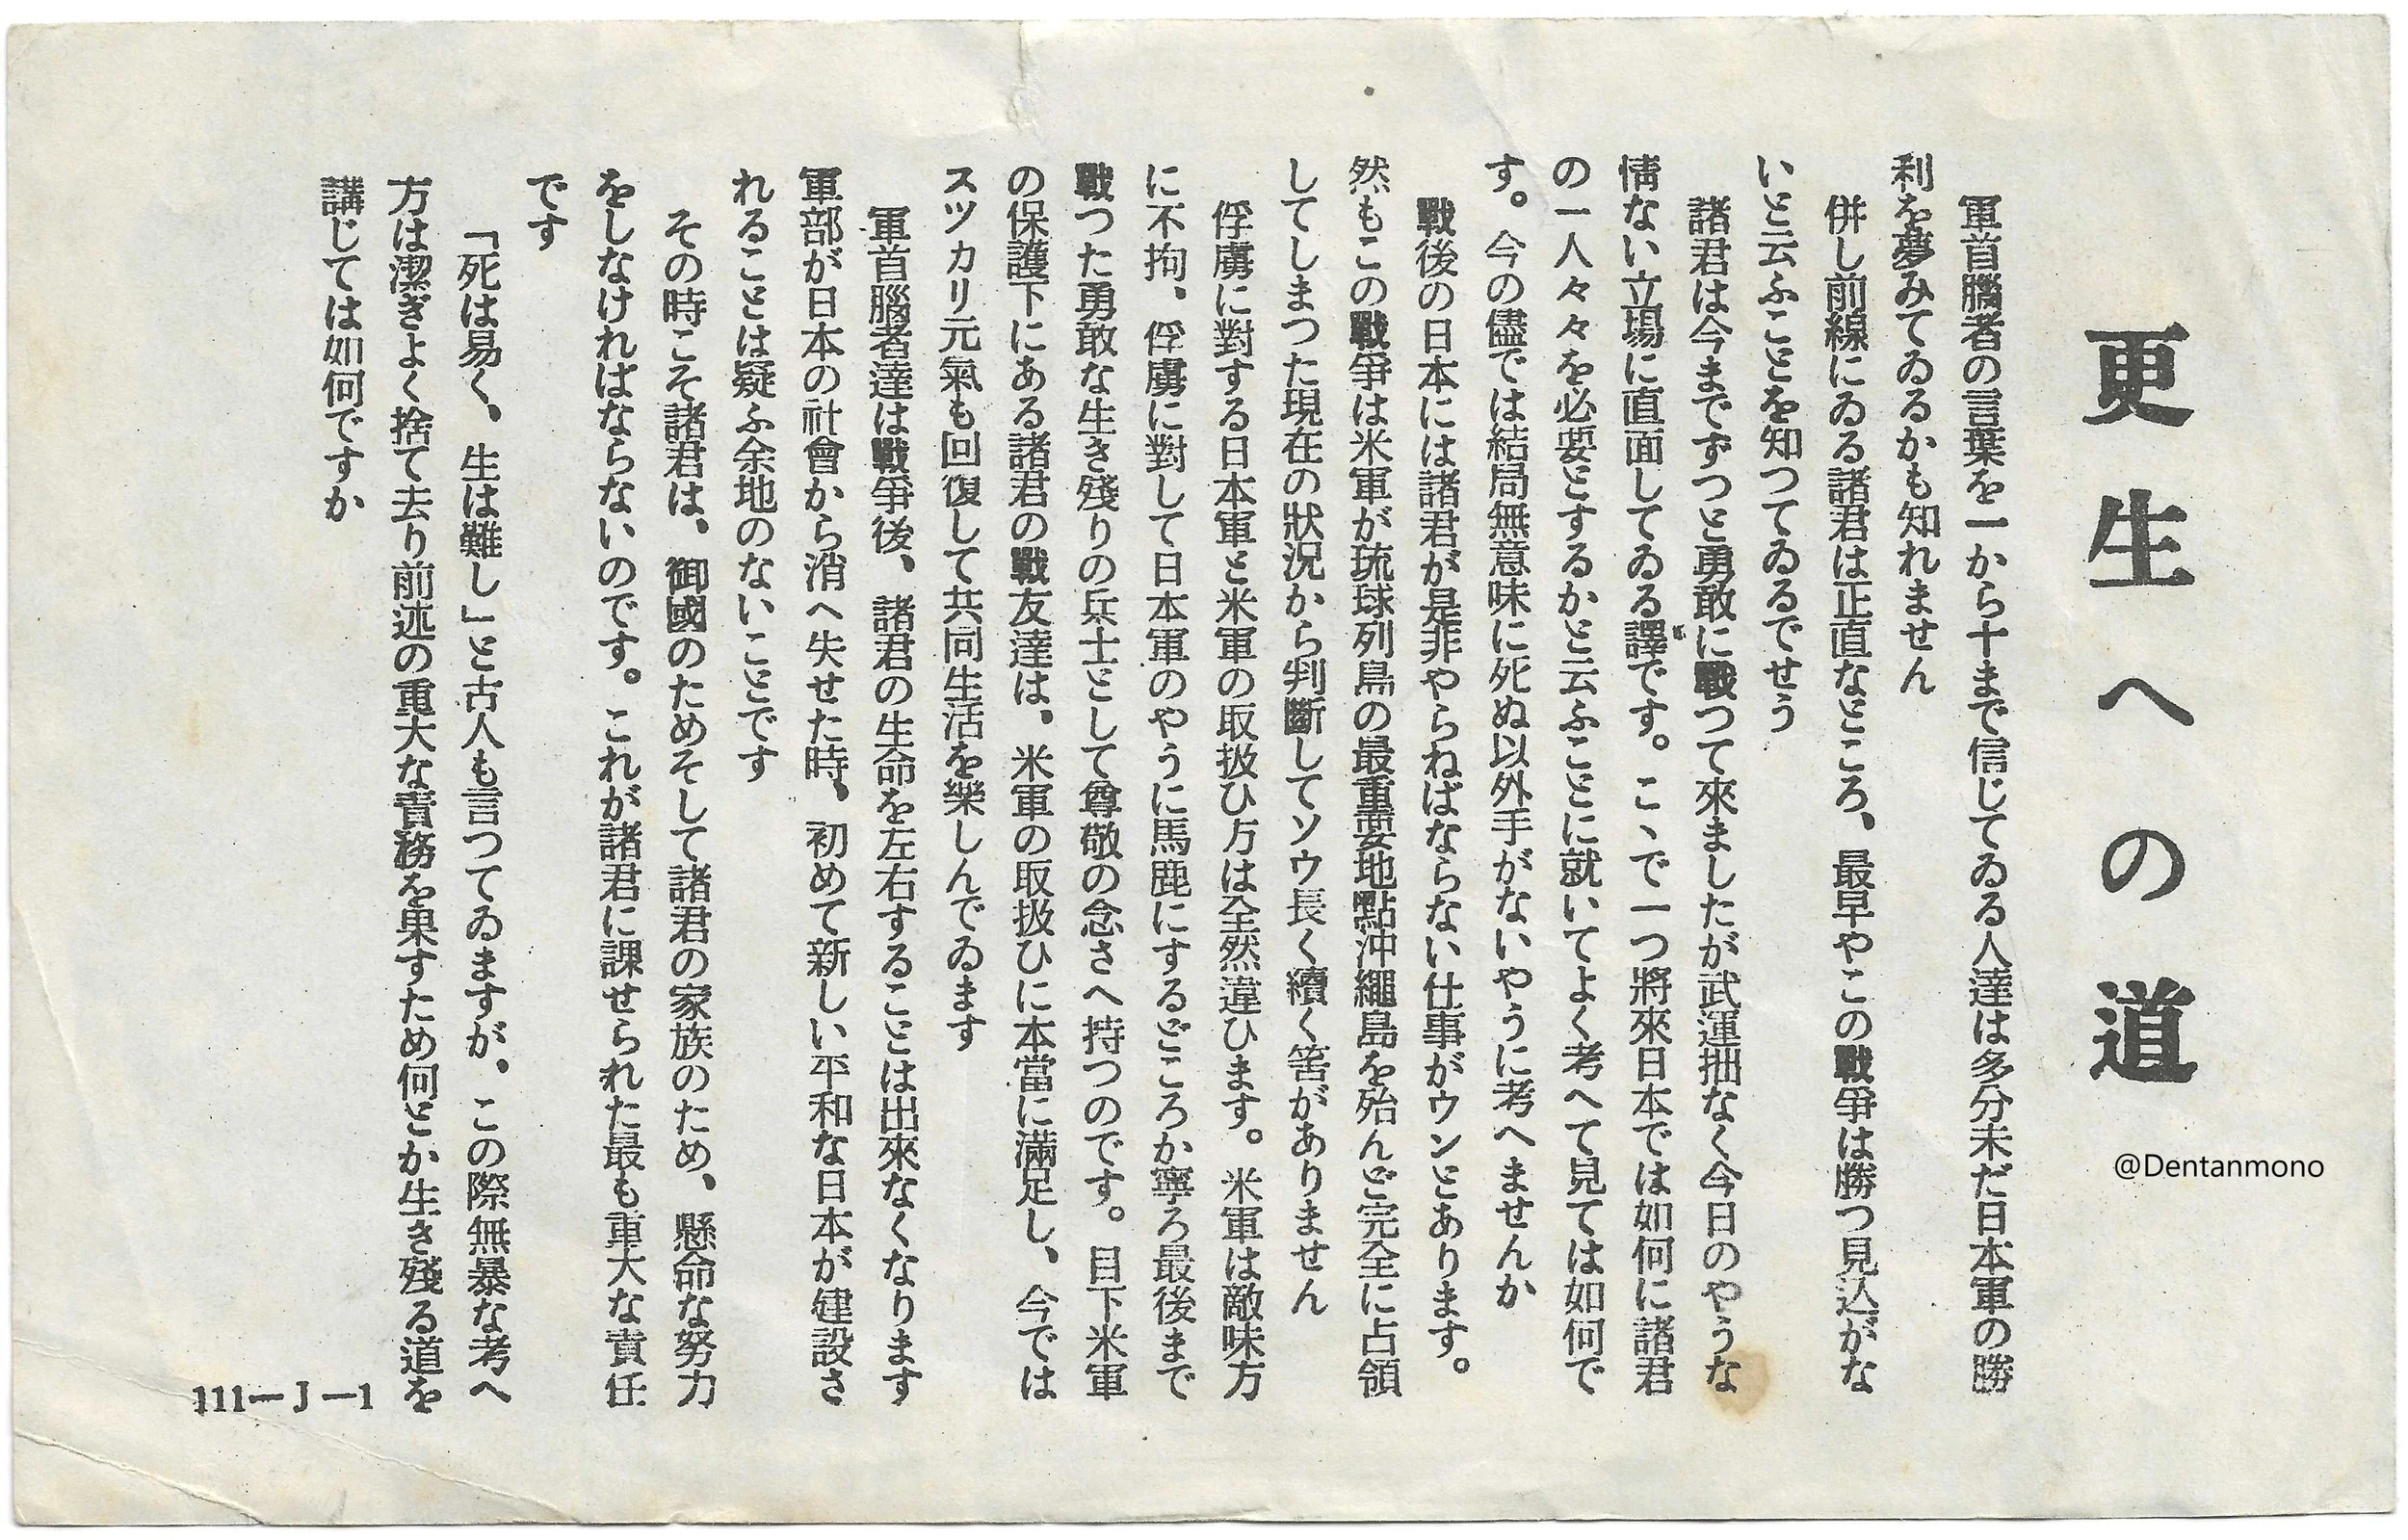 更生への道
@Dentanmono
軍首腦者の言葉を一から十まで信じてゐる人達は多分未だ日本軍の勝
利を夢みてゐるかも知れません
併し前線にゐる諸君は正直なところ、最早やこの戰爭は勝つ見込がな
いと云ふことを知つてゐるでせう
諸君は今までずつと勇敢に戰つて來ましたが武運拙なく今日のやうな
情ない立場に直面してゐる譯です。こゝで一つ將來日本では如何に諸君
の一人々々を必要とするかと云ふことに就いてよく考へて見ては如何で
す。今の儘では結局無意味に死ぬ以外手がないやうに考へませんか
戰後の日本には諸君が是非やらねばならない仕事がウンとあります。
然もこの戰爭は米軍が琉球列島の最重要地點沖繩島を殆んど完全に占領
してしまつた現在の狀況から判斷してソウ長く續く筈がありません
俘虜に對する日本軍と米軍の取扱ひ方は全然違ひます。米軍は敵味方
に不拘、俘虜に對して日本軍のやうに馬鹿にするどころか寧ろ最後まで
戰つた勇敢な生き殘りの兵士として尊敬の念さへ持つのです。目下米軍
の保護下にある諸君の戰友達は、米軍の取扱ひに本當に滿足し、今では
スツカリ元氣も回復して共同生活を樂しんでゐます
軍首腦者達は戰爭後、諸君の生命を左右することは出來なくなります
軍部が日本の社會から消へ失せた時、初めて新しい平和な日本が建設さ
れることは疑ふ余地のないことです
その時こそ諸君は、御國のためそして諸君の家族のため、懸命な努力
をしなければならないのです。これが諸君に課せられた最も重大な責任
です
「死は易く、生は難し」と古人も言つてゐますが、この際無暴な考へ
方は潔ぎよく捨て去り前述の重大な責務を果すため何とか生き殘る道を
講じては如何ですか
111-J-1